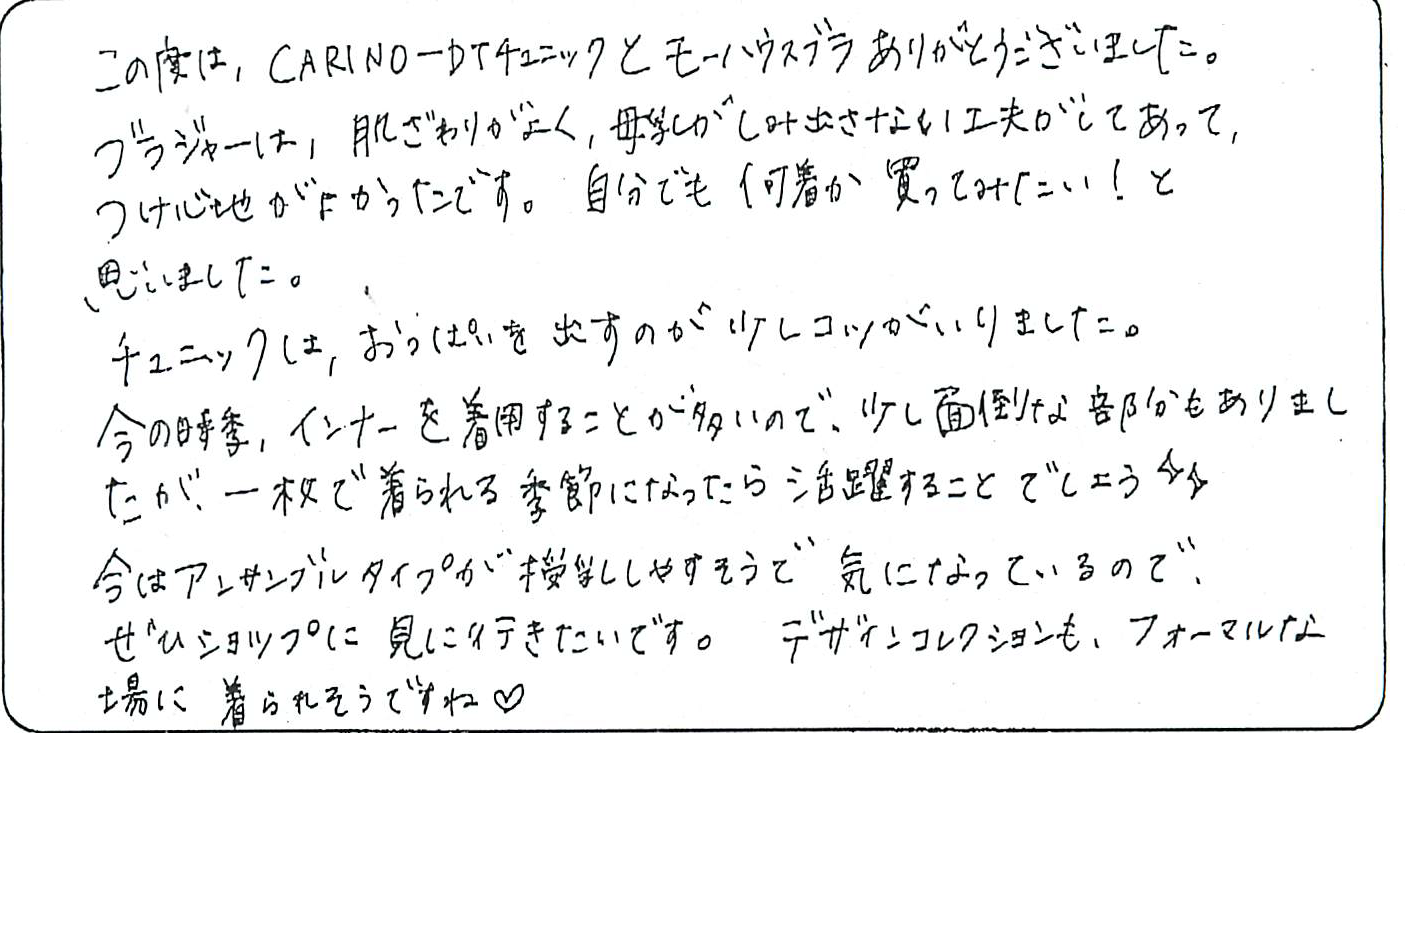 この度は, CARINO-DTチュニックとモーハウスブラありがとうございました。
ブラジャーは, 肌ざわりがよく, 母乳がしみ出さない工夫がしてあって,
つけ心地がよかったです。 自分でも 何着か 買ってみたい！と
思いました。
チュニックは, おっぱいを 出すのが 少しコツがいりました。
今の時季, インナーを着用することが多いので、少し面倒な部分もありまし
たが、一枚で着られる季節になったら活躍することでしょう☆☆
今はアンサンブルタイプが授乳しやすそうで気になっているので、
ぜひショップに見に行きたいです。 デザインコレクションも、フォーマルな
場に 着られそうですね♡